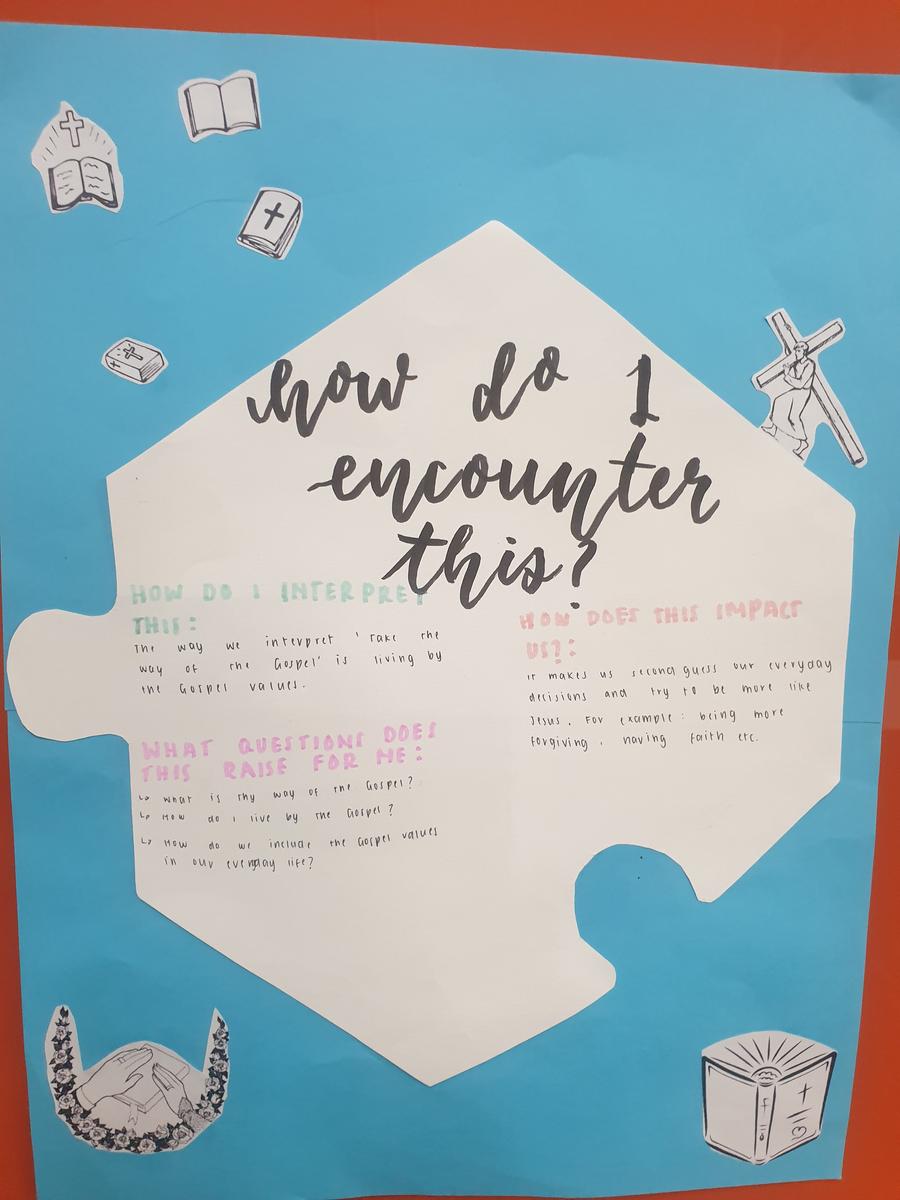 how do I
encounter
this?
HOW DO I INTERPRET
THIS:
The way we interpret 'Take the
way of the Gospel' is living by
the Gospel values.
HOW DOES THIS IMPACT
US?:
it makes us second guess our everyday
decisions and try to be more like
Jesus. For example: being more
forgiving, having faith etc.
WHAT QUESTIONS DOES
THIS RAISE FOR ME:
↳ what is thy way of the Gospel?
↳ How do I live by the Gospel?
↳ How do we include the Gospel values
in our everyday life?